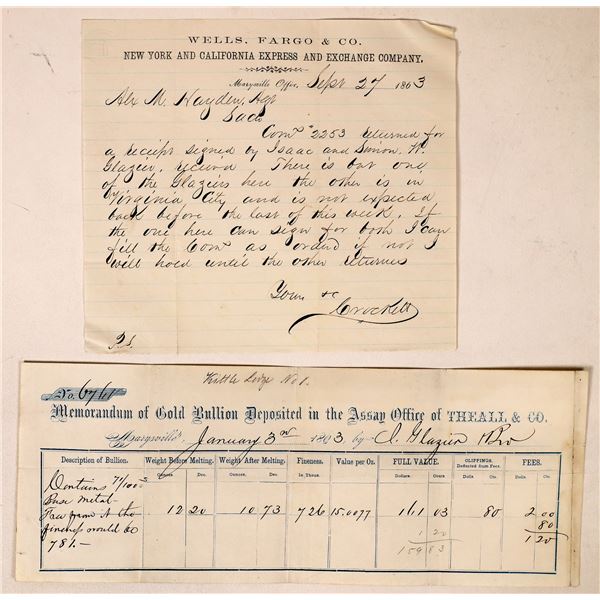 WELLS, FARGO & CO.
NEW YORK AND CALIFORNIA EXPRESS AND EXCHANGE COMPANY,
Marysville Office, Sept 27 1863
Alex M. Hayden, Agt
Sac
Com 2253 returned for
a receipt signed by Isaac and Simon W.
Glazier, received There is but one
of the Glaziers here the other is in
Virginia City, and is not expected
back before the last of this week. If
the one here can sign for both I can
fill the Com as order'd if not I
will hold until the other returnes
Yours &c
Crockett
No. 6761
Kittle Lodge No 1.
Memorandum of Gold Bullion Deposited in the Assay Office of THEALL & CO.
Marysville, January 3rd 1863 by I. Glazier & Bro
Description of Bullion. Weight Before Melting. Weight After Melting. Fineness. Value per Oz. FULL VALUE. CLIPPINGS, Deducted from Fees. FEES.
Ounces. Dec. Ounces. Dec. In Thous. Dollars. Cents.
Contains
Base metal
Free from it the 12 20 10 73 726 15.0077 161 03 80 2 00
fineness would be 1 20 80
781.— 159 83 1 20